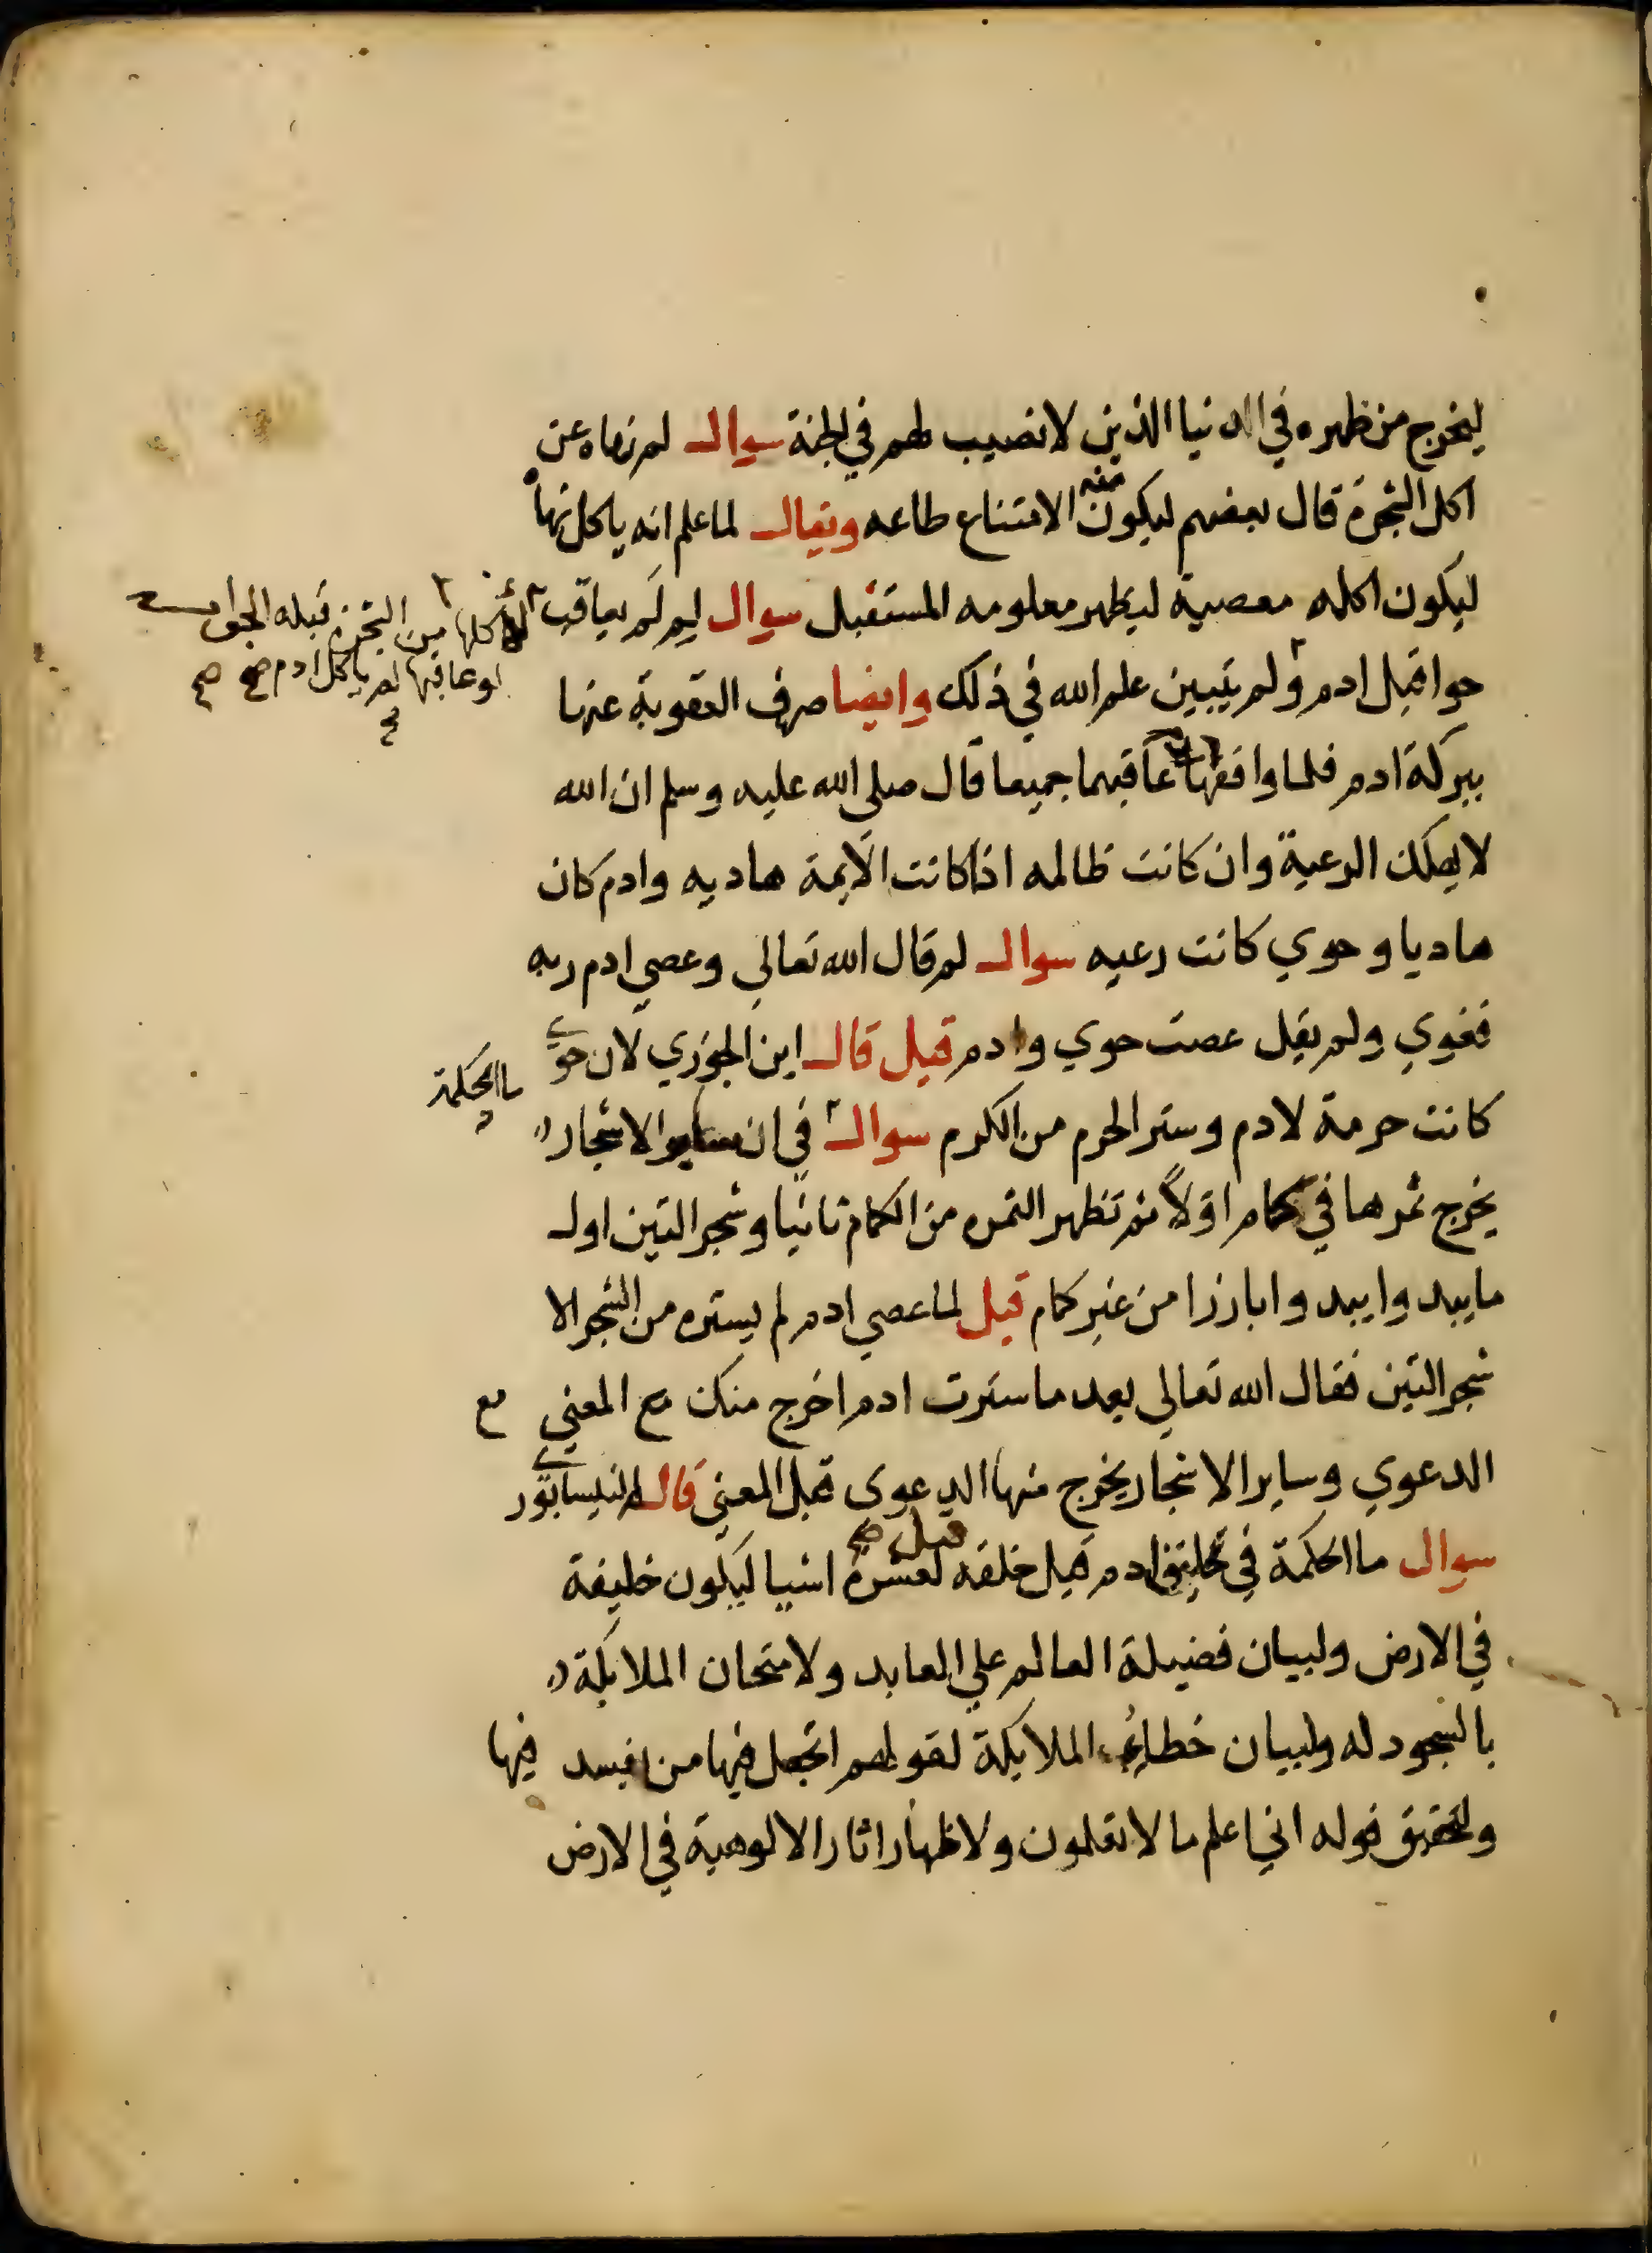 ليخرج من ظهره في الدنيا الذين لا نصيب لهم في الجنة سوال لم نهاه عن
اكل الشجرة قال بعضهم ليكون منه الامتناع طاعه ويقال لما علم انه ياكل نهاه
ليكون اكله معصية ليظهر معلومه المستقبل سوال لم لم يعاقب
لاكلها من الشجرة قبله الجواب
لو عاقبها لم ياكل ادم صح صح
حوا قبل ادم ولم يتبين علم الله في ذلك وايضا صرف العقوبة عنها
ببركة ادم فلما وافقها عاقبهما جميعا قال صلى الله عليه وسلم ان الله
لا يهلك الرعية وان كانت ظالمه اذا كانت الايمة هاديه وادم كان
هاديا وحوي كانت رعيه سوال لم قال الله تعالي وعصي ادم ربه
فغوي ولم يقل عصت حوي وادم قيل قال ابن الجوزي لان حوي
ما الحكمة
كانت حرمة لادم وستر الحرم من الكرم سوال في ان ساير الاشجار
يخرج ثمرها في كمام اولاً ثم تظهر الثمره من الكمام ثانيا وشجر التين اول
ما يبدوا يبدوا بارزا من غير كمام قيل لما عصي ادم لم يستره من الشجر الا
شجر التين فقال الله تعالي بعد ما سترت ادم اخرج منك مع المعني
الدعوي وساير الاشجار يخرج منها الدعوى قبل المعني قاله النيسابوري
سوال ما الحكمة في تخليق ادم قبل خلقه قيل صح لعشرة اشيا ليكون خليفة
في الارض ولبيان فضيلة العالم علي العابد ولامتحان الملايكة
بالسجود له ولبيان خطاء الملايكة لقولهم اتجعل فيها من يفسد فيها
ولتحقيق قوله اني اعلم ما لا تعلمون ولاظهار اثار الالوهية في الارض